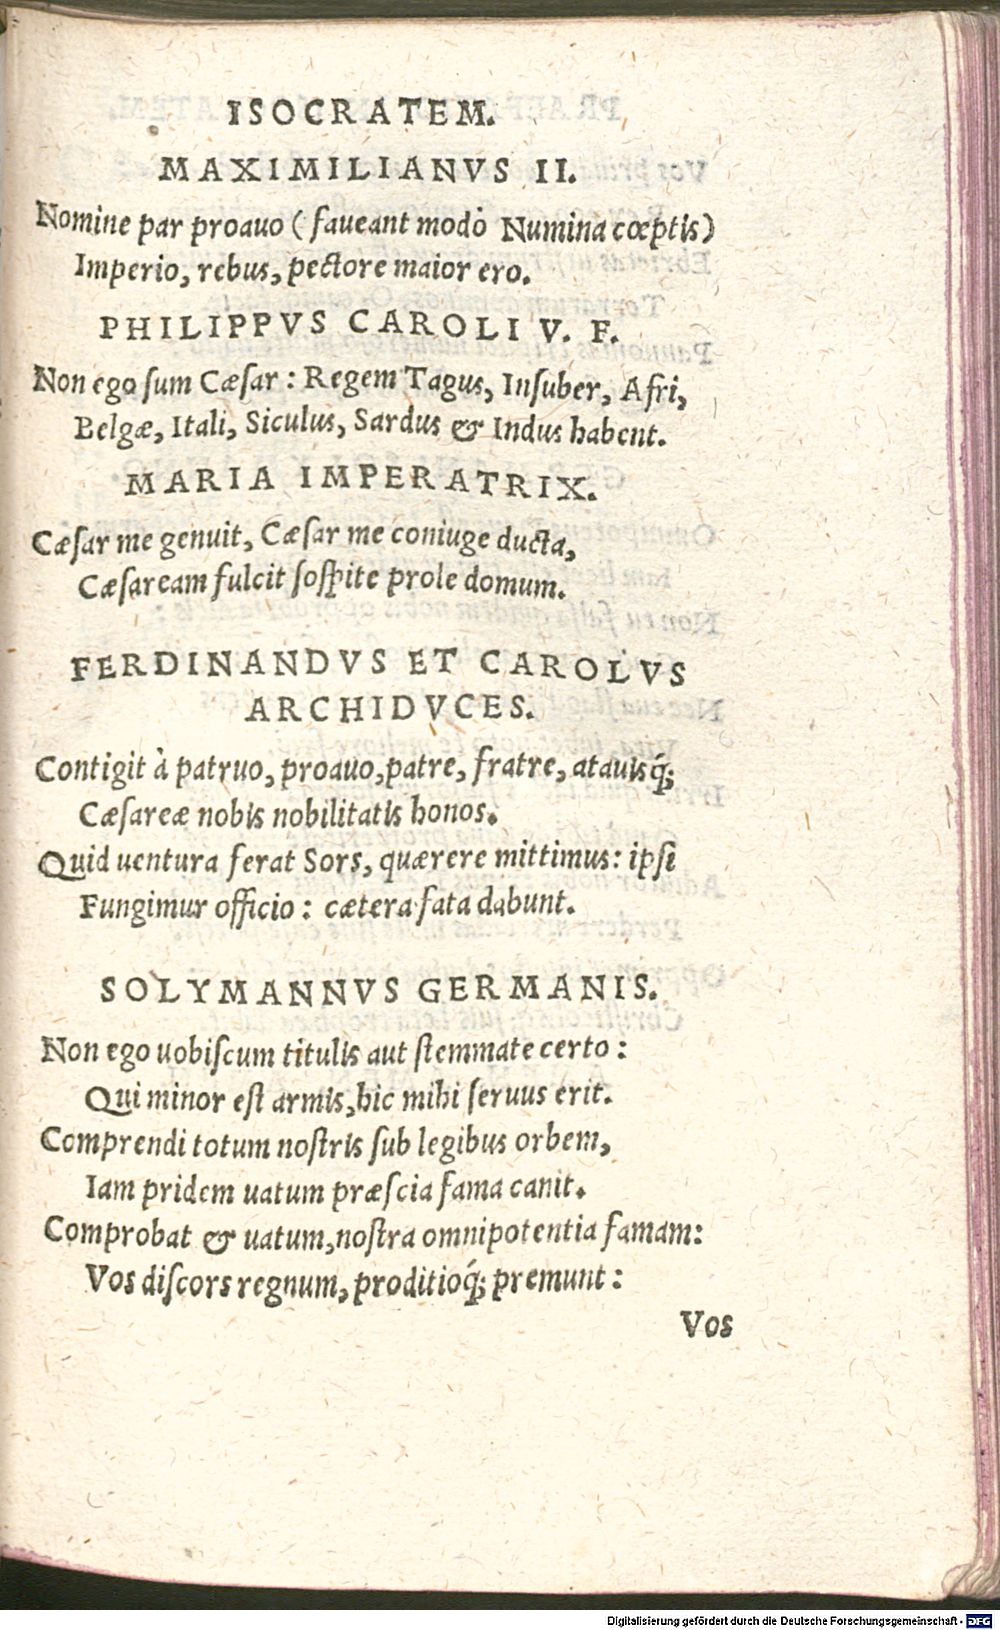 ISOCRATEM.
MAXIMILIANVS II.
Nomine par proauo (faueant modò Numina cœptis)
Imperio, rebus, pectore maior ero.
PHILIPPVS CAROLI V. F.
Non ego sum Cæsar: Regem Tagus, Insuber, Afri,
Belgæ, Itali, Siculus, Sardus & Indus habent.
MARIA IMPERATRIX.
Cæsar me genuit, Cæsar me coniuge ducta,
Cæsaream fulcit sospite prole domum.
FERDINANDVS ET CAROLVS
ARCHIDVCES.
Contigit à patruo, proauo, patre, fratre, atauisq́;
Cæsareæ nobis nobilitatis honos.
Quid uentura ferat Sors, quærere mittimus: ipsi
Fungimur officio: cætera fata dabunt.
SOLYMANNVS GERMANIS.
Non ego uobiscum titulis aut stemmate certo:
Qui minor est armis, hic mihi seruus erit.
Comprendi totum nostris sub legibus orbem,
Iam pridem uatum præscia fama canit.
Comprobat & uatum, nostra omnipotentia famam:
Vos discors regnum, proditioq́; premunt:
Vos
Digitalisierung gefördert durch die Deutsche Forschungsgemeinschaft - DFG